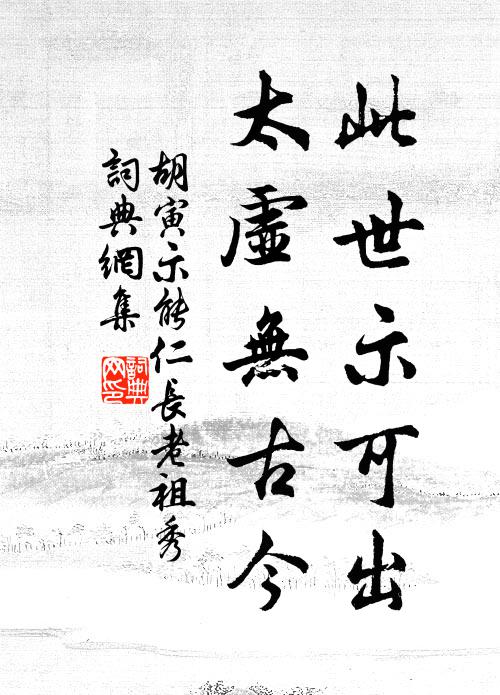 此世示可出
太虛無古今
胡寅示能仁長老祖秀
詞典網集
詞典
网印